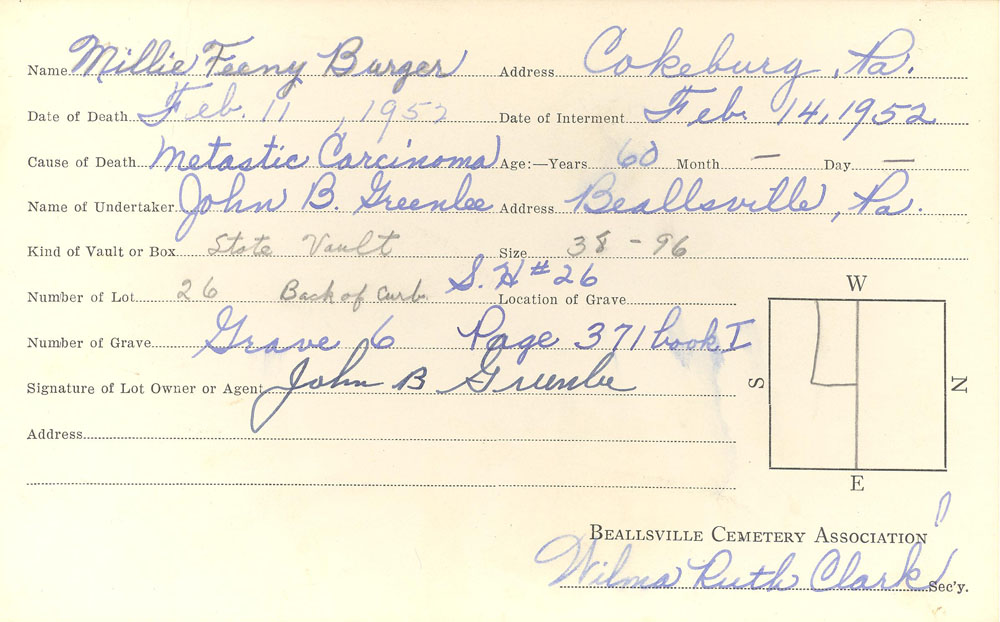 Name Millie Feeny Burger Address Cokeburg, Pa.
Date of Death Feb. 11, 1952 Date of Interment Feb. 14, 1952
Cause of Death Metastic Carcinoma Age:—Years 60 Month — Day —
Name of Undertaker John B. Greenlee Address Beallsville, Pa.
Kind of Vault or Box State Vault Size 38 - 96
Number of Lot 26 Back of Curb S. H #26 Location of Grave
Number of Grave Grave 6 Page 371 book I
Signature of Lot Owner or Agent John B Greenlee
Address
W
S
N
E
BEALLSVILLE CEMETERY ASSOCIATION
Wilma Ruth Clark Sec'y.